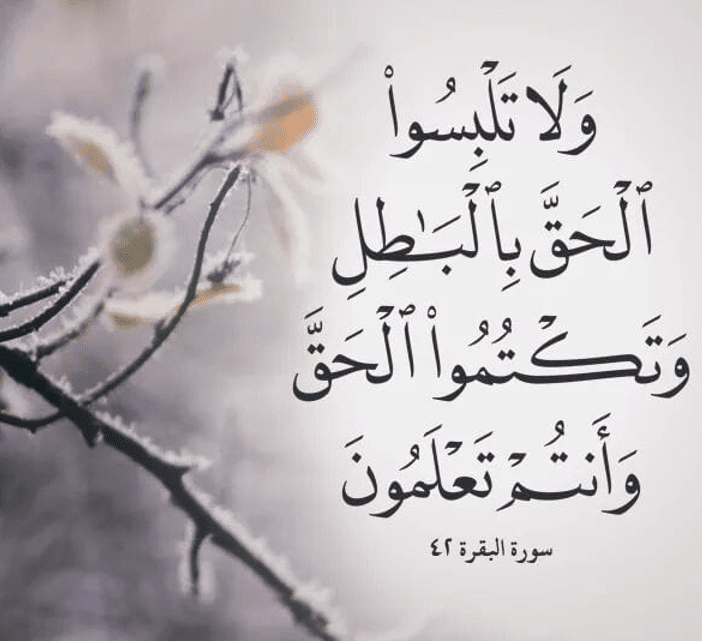 وَلَا تَلْبِسُوا۟
ٱلْحَقَّ بِٱلْبَـٰطِلِ
وَتَكْتُمُوا۟ ٱلْحَقَّ
وَأَنتُمْ تَعْلَمُونَ
سورة البقرة ٤٢